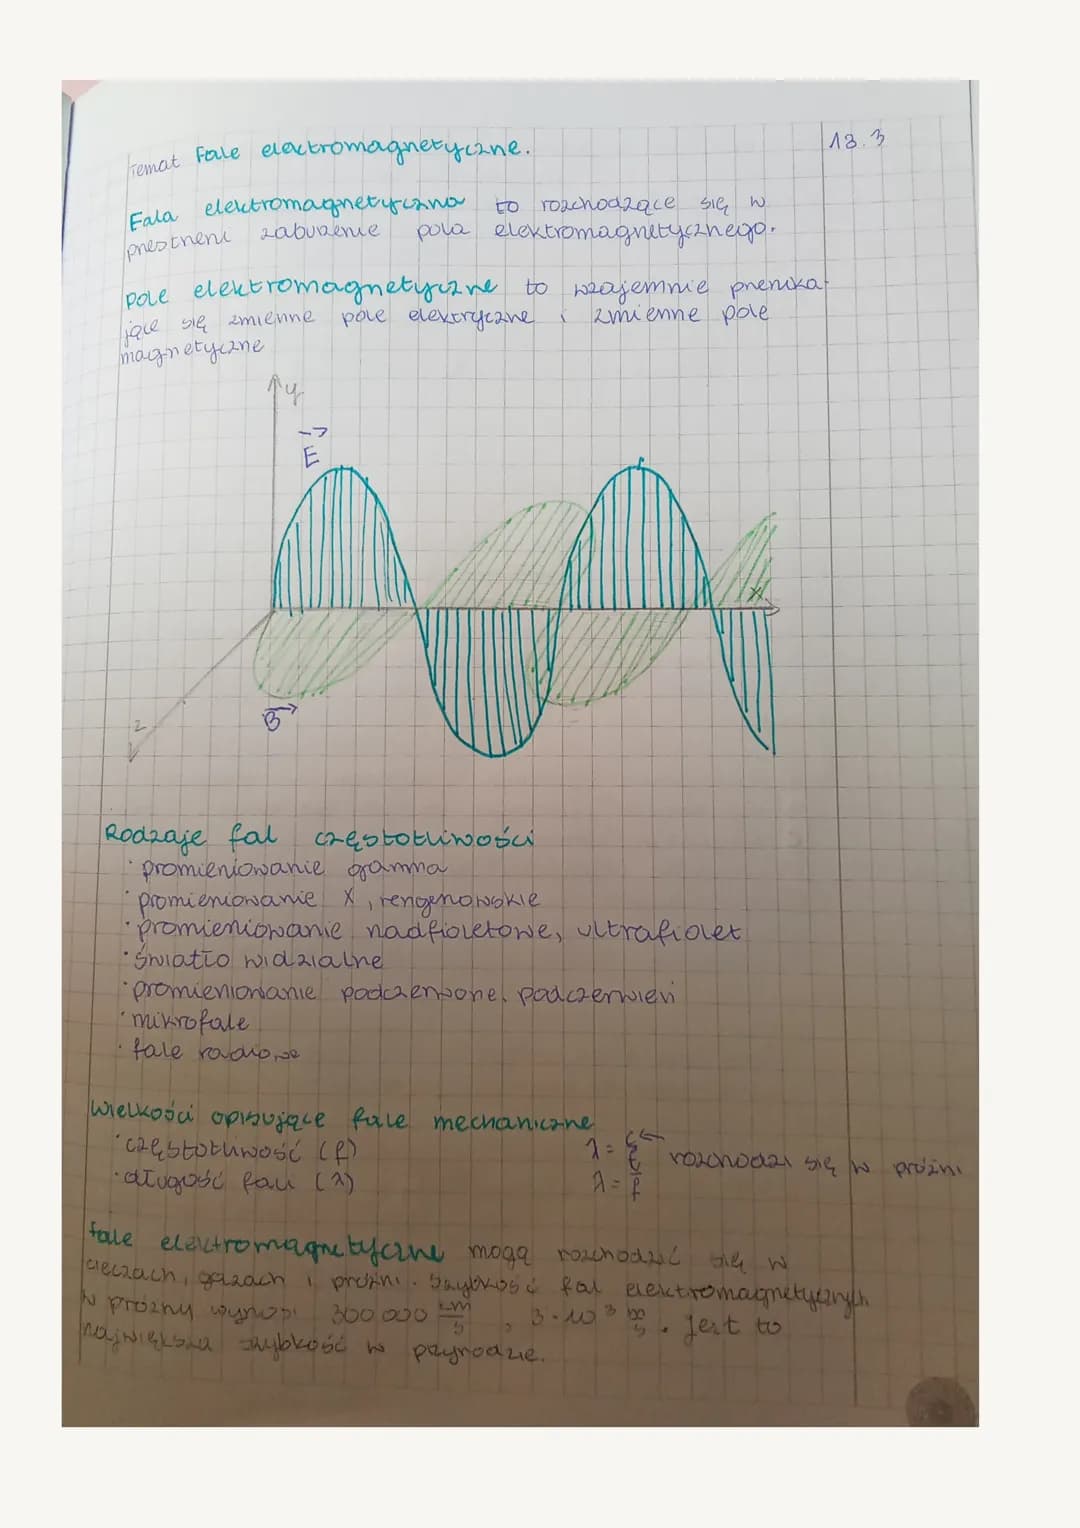 Temat Fale elektromagnetyczne.
13.3
Fala elektromagnetyczna to rozchodzące się w
przestrzeni zaburzenie pola elektromagnetycznego.
pole elektromagnetyczne to wzajemnie przenika-
jące się zmienne pole elektryczne i zmienne pole
magnetyczne
y
E
x
B
z
Rodzaje fal częstotliwości
· promieniowanie gamma
· promieniowanie X, rengenowskie
· promieniowanie nadfioletowe, ultrafiolet
· światło widzialne
· promieniowanie podczerwone, podczerwień
· mikrofale
· fale radiowe
Wielkości opisujące fale mechaniczne
· częstotliwość (f)
· długość fali (λ)
λ = c/f ← rozchodzi się w próżni
λ = /f
fale elektromagnetyczne mogą rozchodzić się w
cieczach, gazach i próżni. Szybkość fal elektromagnetycznych
w próżny wynosi 300 000 km/s, 3·10³ m/s. Jest to
największa szybkość w przyrodzie.